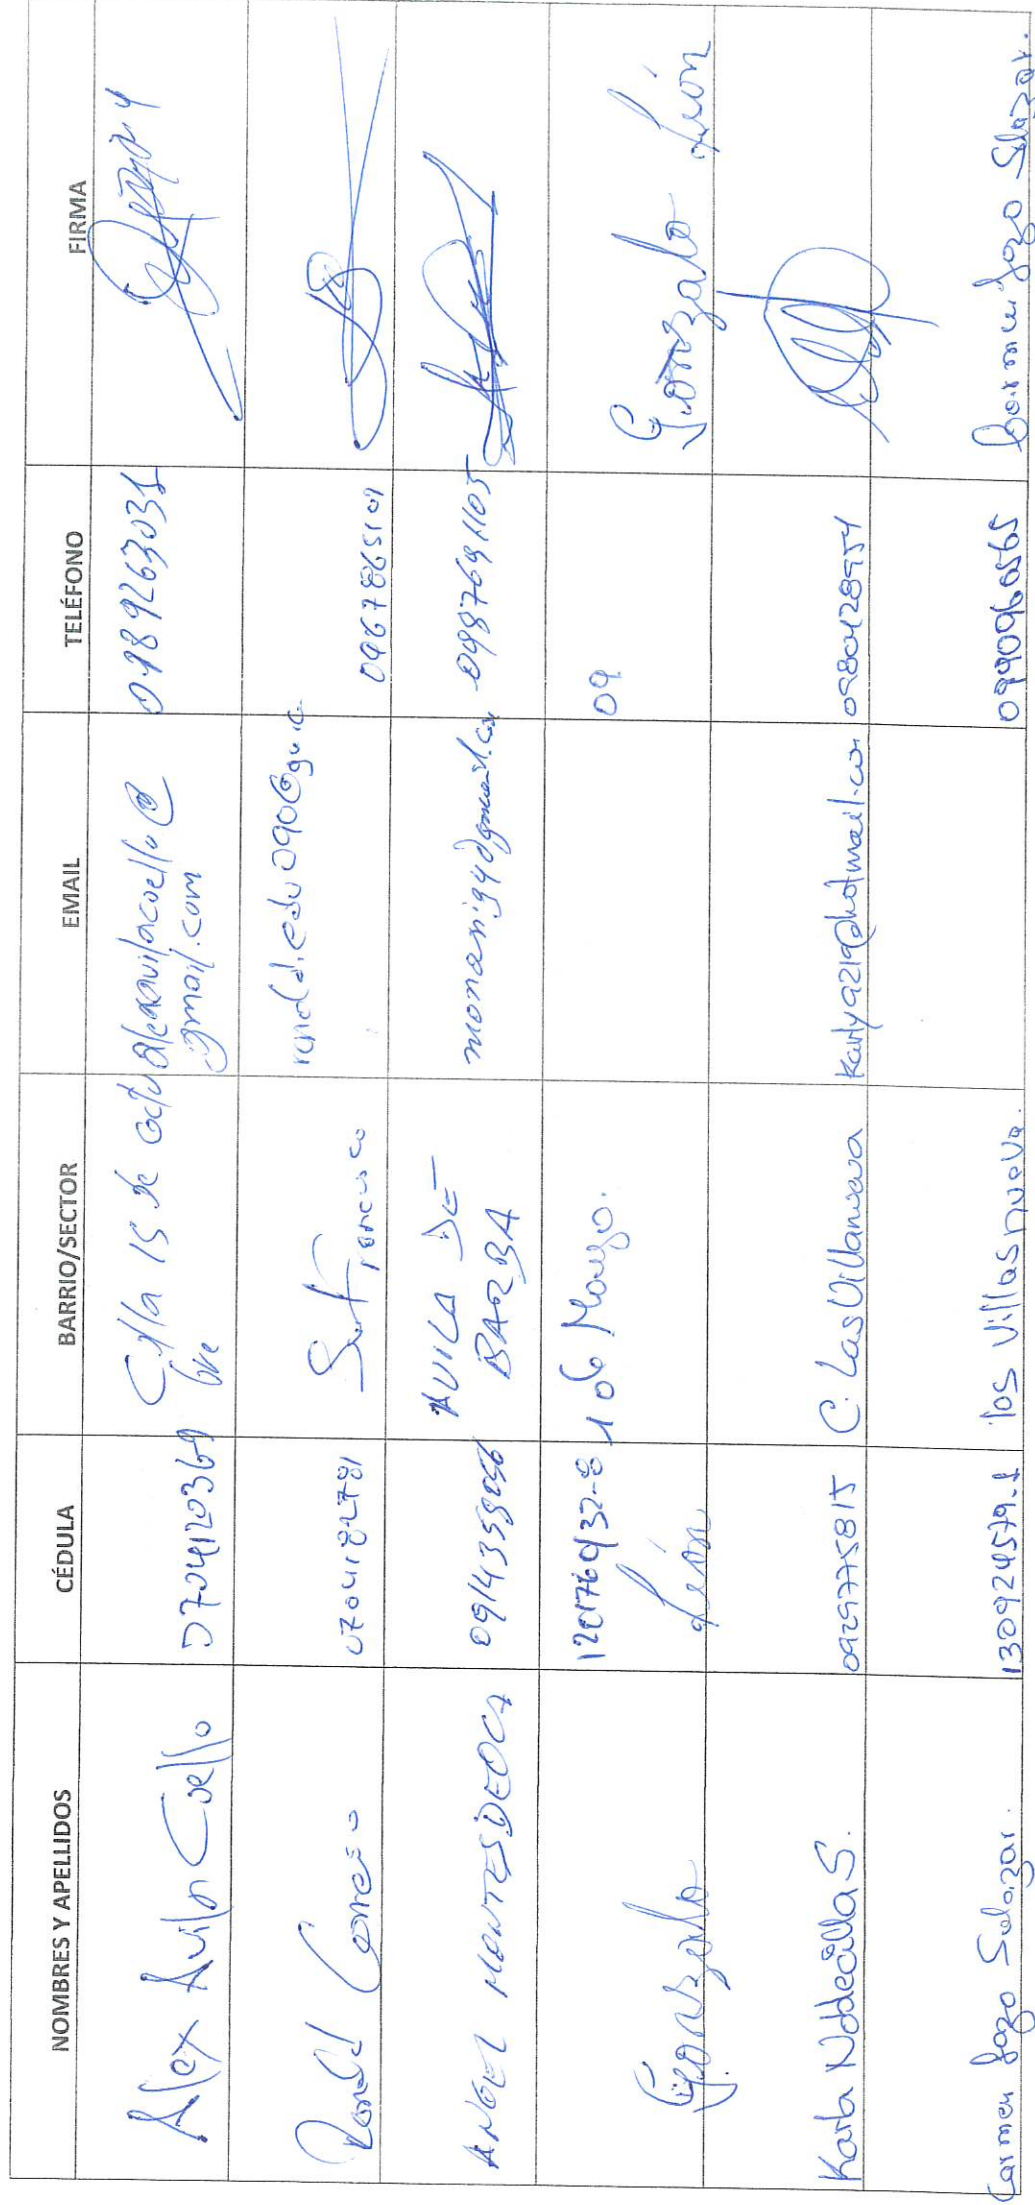 NOMBRES Y APELLIDOS CÉDULA BARRIO/SECTOR EMAIL TELÉFONO FIRMA
Alex Avila Coello 0704120369 Cdla 15 de Octu alexavilacoello@
bre gmail.com 0989263031
Ronald 0704182781 San Francisco 0967865101
ANGEL MONTESDEOCA 0914358056 AVILA DE
BARBA 0987691105
Gonzalo 120176932-8 Marzo. 09 Gonzalo León
León
Karla S. 0929775815 C. Las Villanueva Karly9219@hotmail.com 0980428954
Carmen Lazo Salazar. 130924579-1 los Villas nueva. 0990960565 Carmen Lazo Salazar.